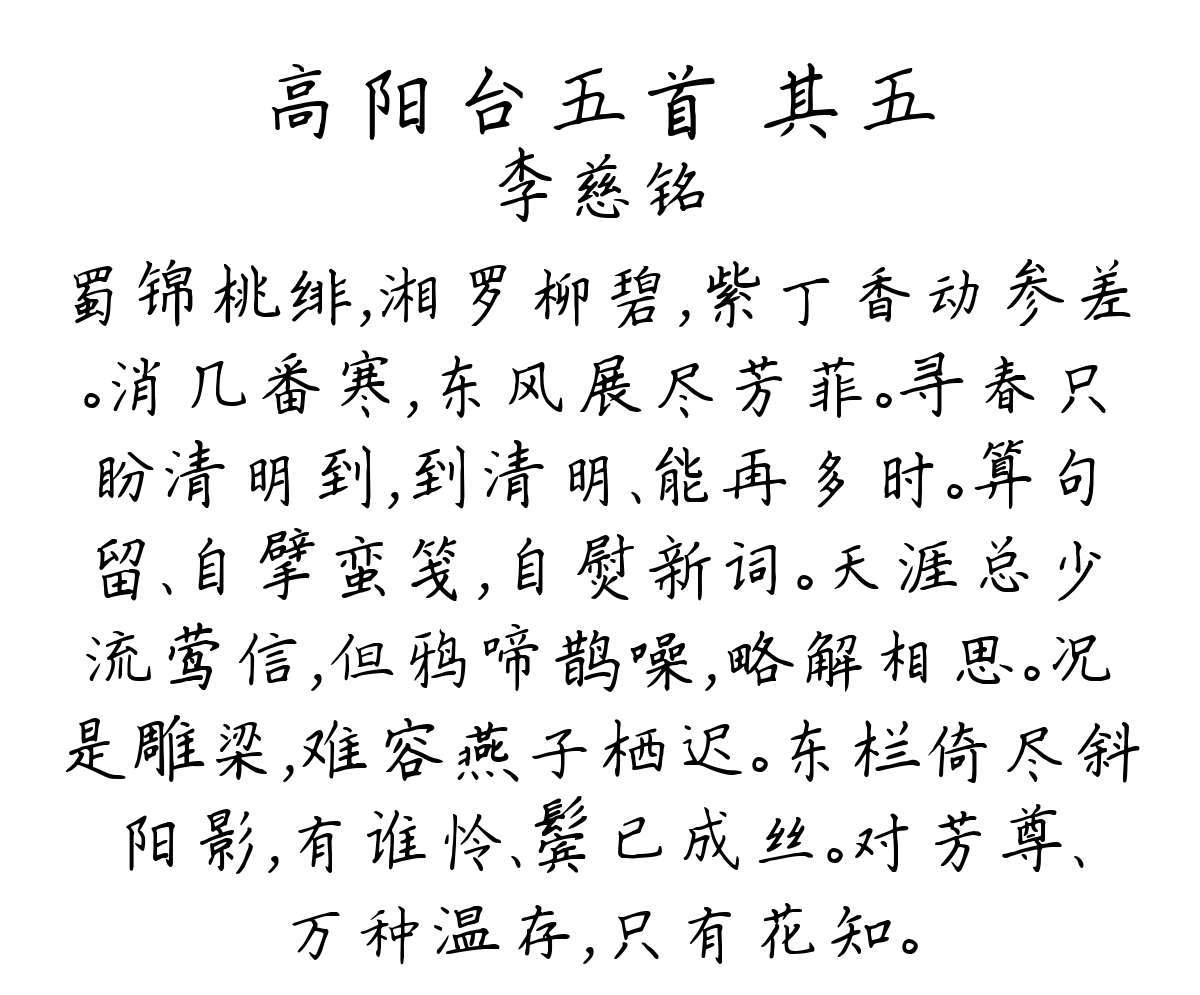 高阳台五首 其五
李慈铭
蜀锦桃绯,湘罗柳碧,紫丁香动参差
。消几番寒,东风展尽芳菲。寻春只
盼清明到,到清明、能再多时。算句
留、自擘蛮笺,自熨新词。天涯总少
流莺信,但鸦啼鹊噪,略解相思。况
是雕梁,难容燕子栖迟。东栏倚尽斜
阳影,有谁怜、鬓已成丝。对芳尊、
万种温存,只有花知。